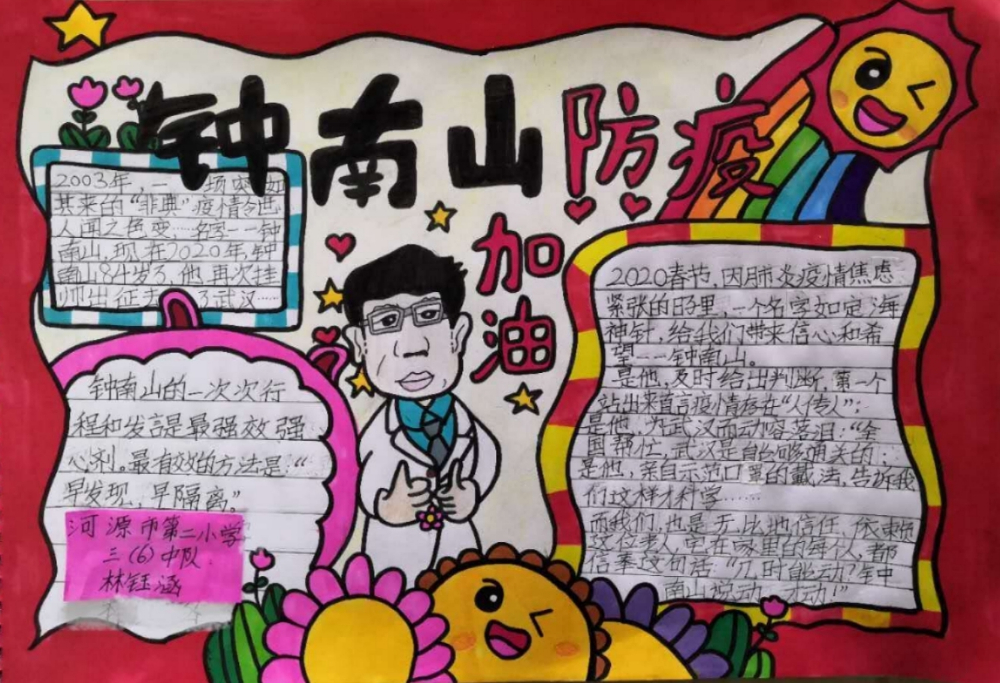 钟南山防疫
加油
2003年,一一场突如
其来的“非典”疫情令世
人闻之色变……名字一一钟
南山,现在2020年,钟
南山84岁了,他再次挂
帅出征去了武汉……
钟南山的一次次行
程和发言是最强效强
心剂。最有效的方法是:“
早发现,早隔离”
河源市第二小学
三(6)中队
林钰涵
2020春节,因肺炎疫情焦虑
紧张的日子里,一个名字如定海
神针,给我们带来信心和希
望一一钟南山。
是他,及时给出判断,第一个
站出来直言疫情存在“人传人”;
是他,为武汉而动容落泪:“全
国帮忙,武汉是自能够通关的;
是他,亲自示范口罩的戴法,告诉我
们这样才科学……
而我们,也是无比地信任、依赖
这位老人,宅在家里的每个人,都
信奉这句话“几时能动?钟
南山说动,才动!”